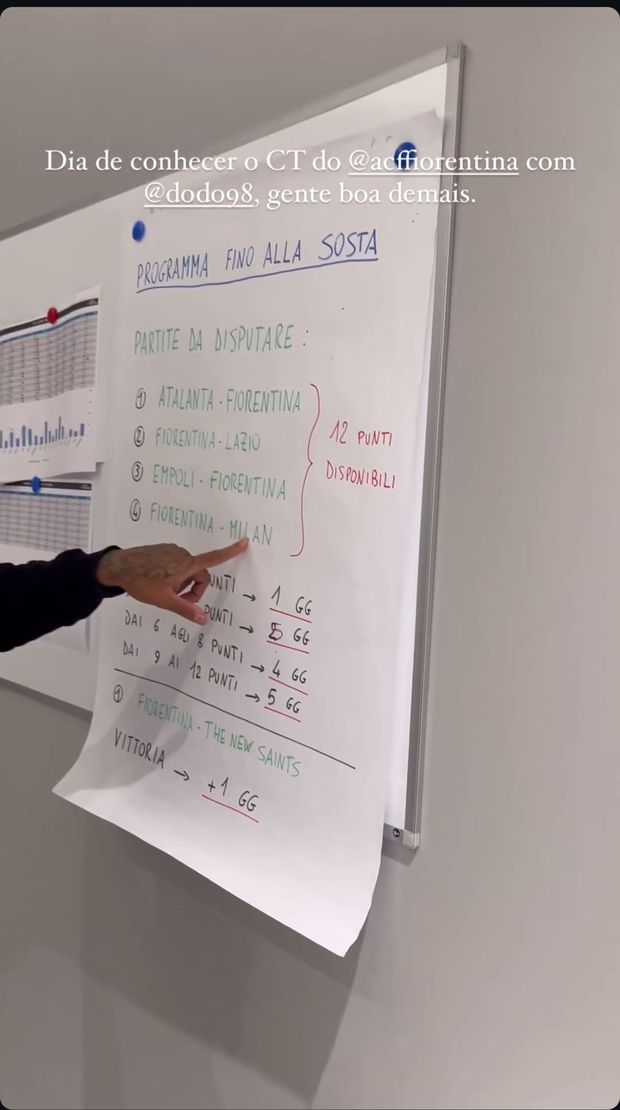 Dia de conhecer o CT do @acffiorentina com
@dodo98, gente boa demais.
PROGRAMMA FINO ALLA SOSTA
PARTITE DA DISPUTARE :
① ATALANTA - FIORENTINA
② FIORENTINA - LAZIO
③ EMPOLI - FIORENTINA
④ FIORENTINA - MILAN
12 PUNTI
DISPONIBILI
PUNTI → 1 GG
PUNTI → GG
DAI 6 AGLI 8 PUNTI → 4 GG
DAI 9 AI 12 PUNTI → 5 GG
① FIORENTINA - THE NEW SAINTS
VITTORIA → +1 GG